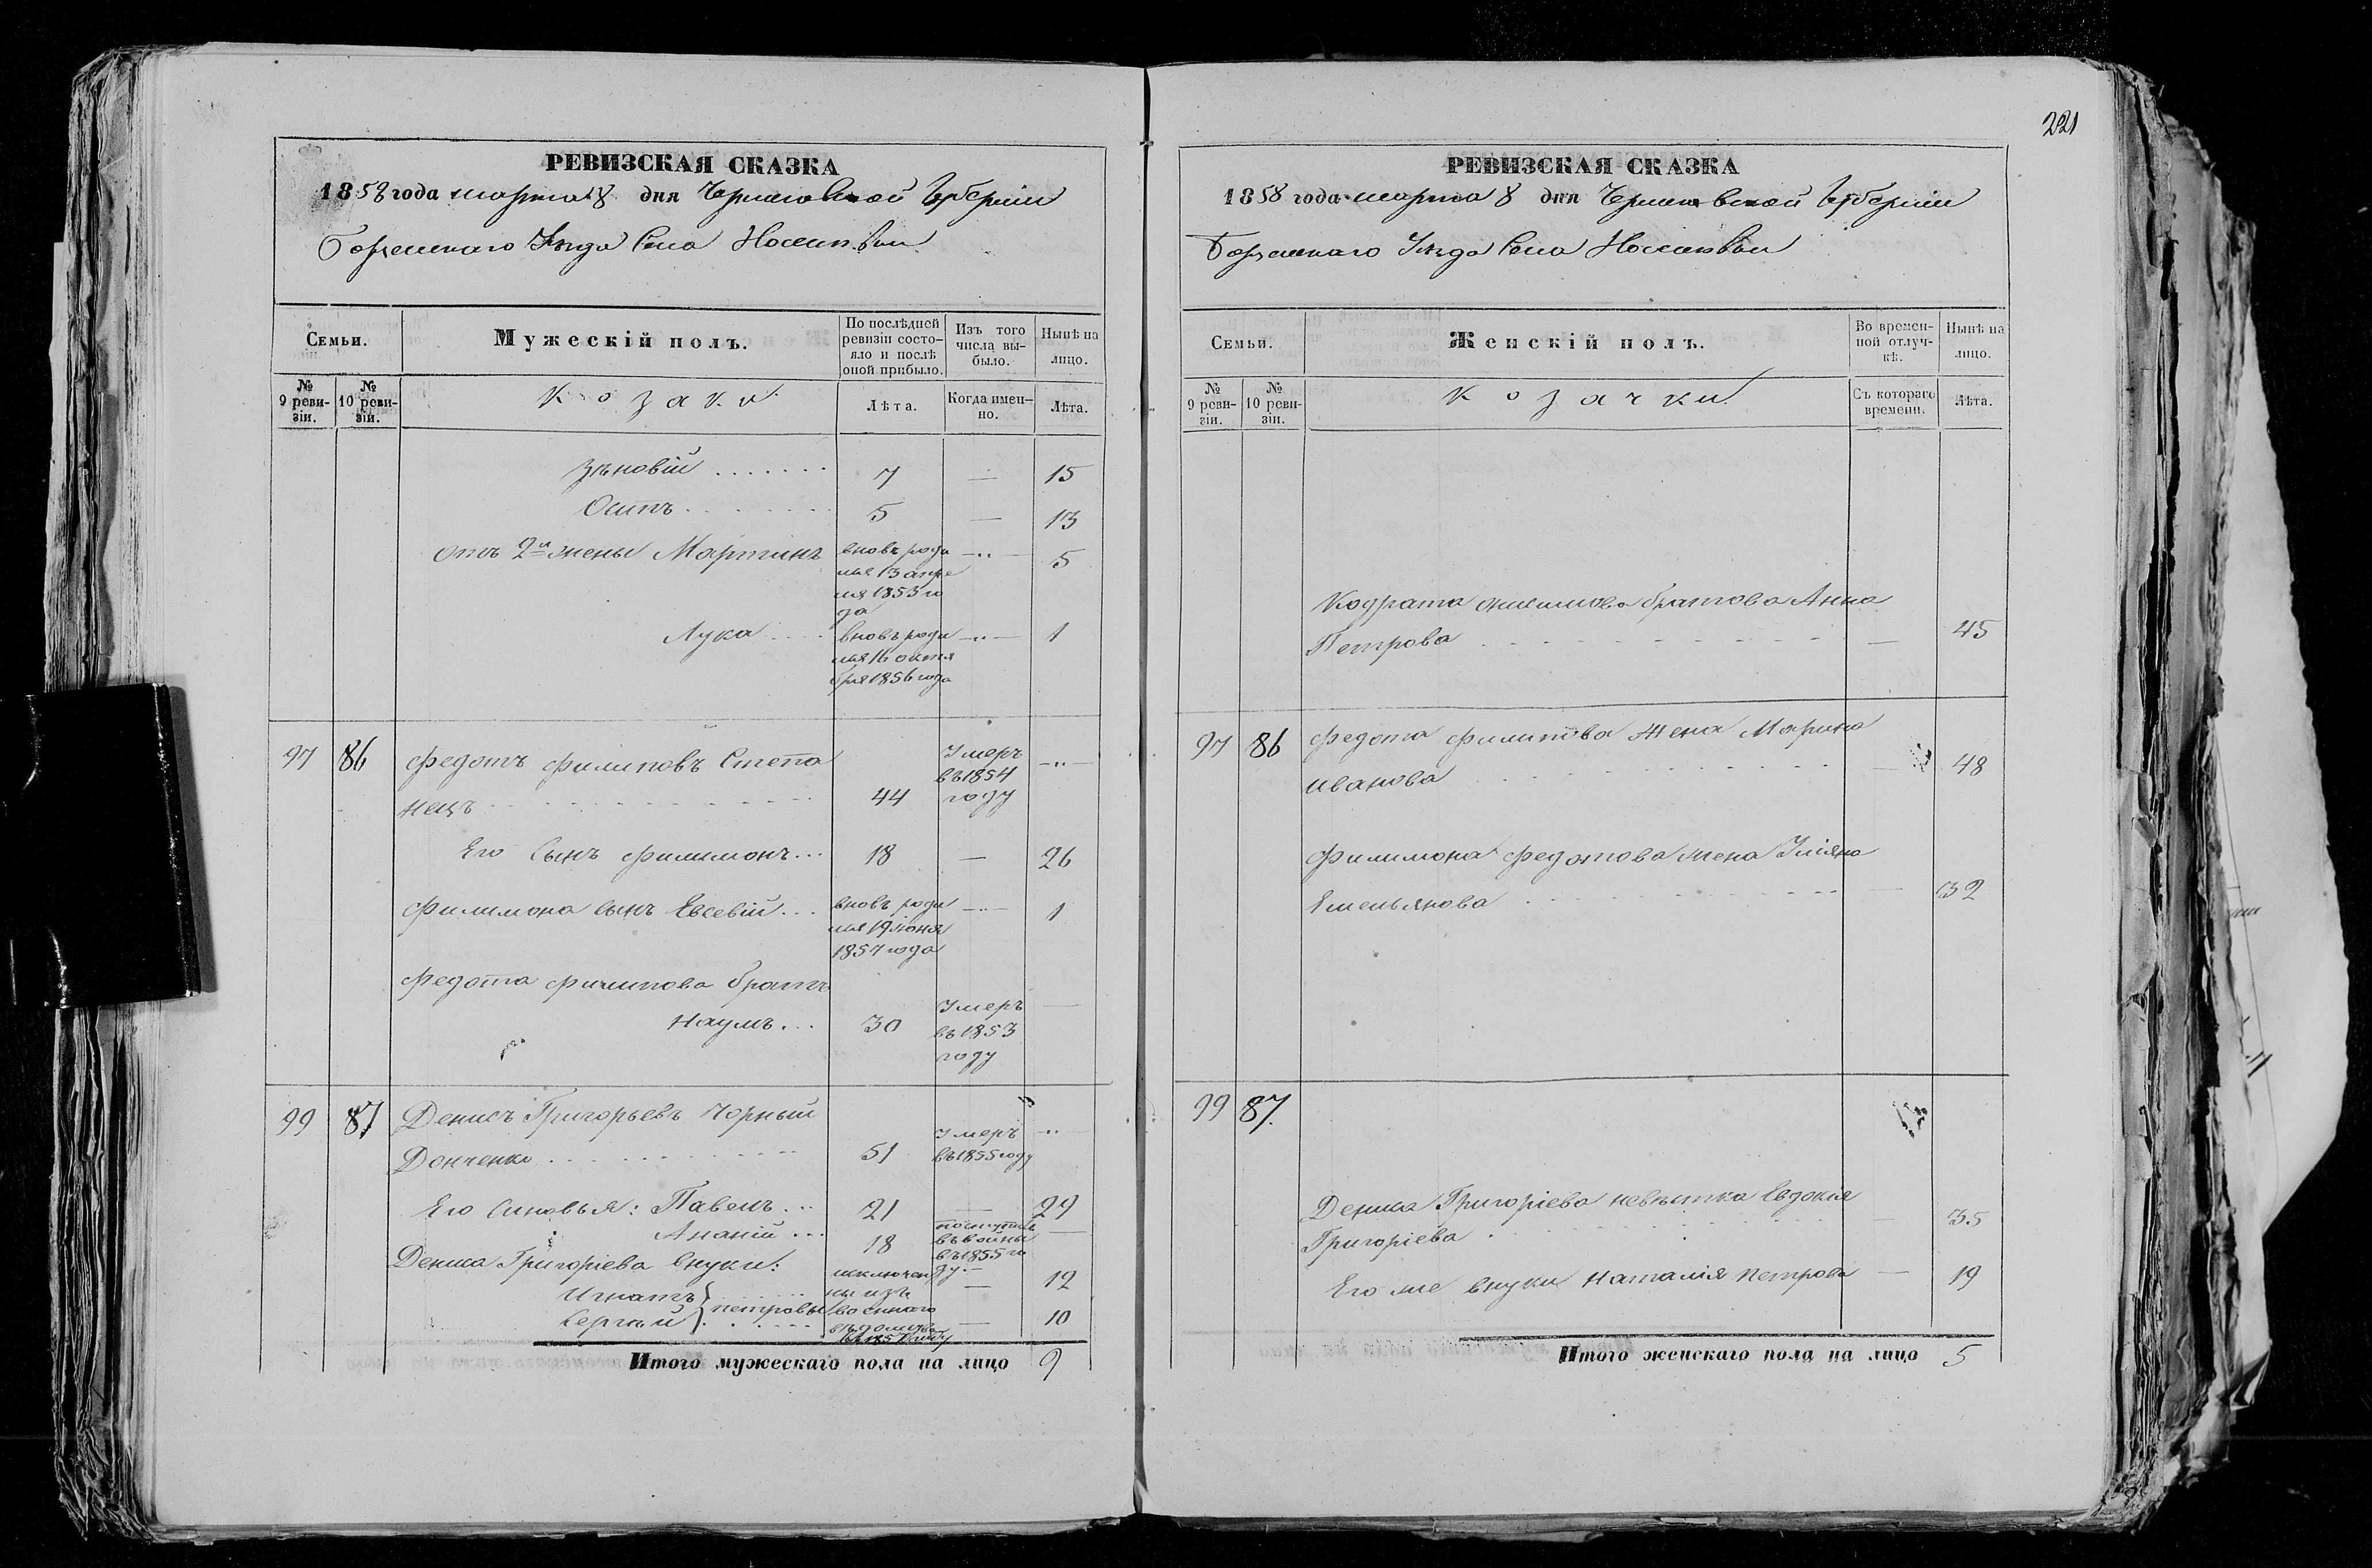 221
РЕВИЗСКАЯ СКАЗКА
1858 года марта 8 дня Черниговской Губерніи
Борзенскаго Уѣзда Села
Семьи.
Мужескій полъ.
По послѣдней ревизіи состояло и послѣ оной прибыло.
Изъ того числа выбыло.
Нынѣ на лицо.
№ 9 ревизіи.
№ 10 ревизіи.
Козаки
Лѣта.
Когда именно.
Лѣта.
Зѣновій . . . . . . . 7 — 15
Осипъ . . . . . . . 5 — 13
отъ 2й жены Мартинъ вновь роди —"— 5
лся 13 апре
ля 1853 го
да
Лука . . . . вновь роди —"— 1
лся 16 октя
бря 1856 года
97 86 Федотъ Филиповъ Степа
нецъ . . . . . . . 44 Умеръ въ 1854 году —"—
Его Сынъ Филимонъ . . . 18 — 26
Филимона сынъ Евсевій . . . вновь роди —"— 1
лся 19 іюня
1857 года
Федота Филипова братъ
Наумъ . . . 30 Умеръ въ 1853 году —
99 87 Денисъ Григорьевъ Чорный
Донченко . . . . . . . 51 Умеръ въ 1855 году —"—
Его Сыновья: Павелъ . . . 21 — 29
Ананій . . . 18 поступилъ въ войны въ 1855 году. —
Дениса Григоріева внуки:
Игнатъ } Петровы — 12
Сергѣй } — 10
исключены изъ военнаго вѣдомства въ 1857 году
Итого мужескаго пола на лицо 9
РЕВИЗСКАЯ СКАЗКА
1858 года марта 8 дня Черниговской Губерніи
Борзенскаго Уѣзда Села
Семьи.
Женскій полъ.
Во временной отлучкѣ.
Нынѣ на лицо.
№ 9 ревизіи.
№ 10 ревизіи.
Козачки
Съ котораго времени.
Лѣта.
Кодрата братова Анна
Петрова . . . . . . . — 45
97 86 Федота Филипова Жена Марина
Иванова . . . . . . . — 48
Филимона Федотова жена Уліяна
Емельянова . . . . . . . — 32
99 87.
Дениса Григоріева невѣстка Евдокія
Григоріева . . . . . . . — 35
Его же внуки Наталія Петрова — 19
Итого женскаго пола на лицо 5